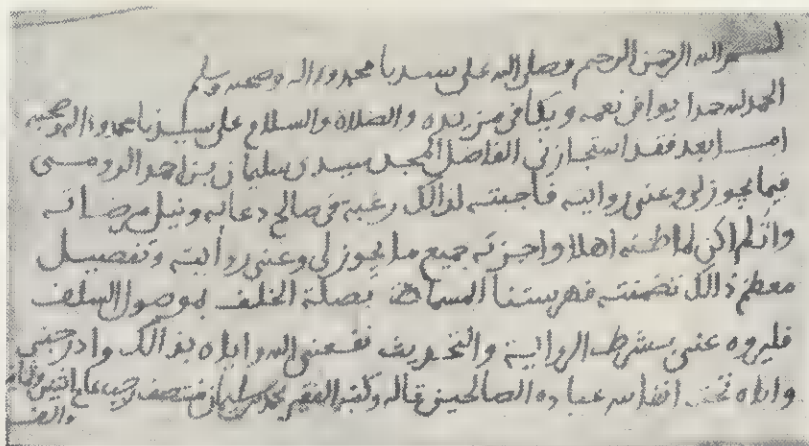 بسم الله الرحمن الرحيم وصلى الله على سيدنا محمد وءاله وصحبه وسلم
الحمد لله حمدا يوافي نعمه ويكافي مزيده والصلاة والسلام على سيدنا محمد وءاله وصحبه
امـا بعد فقد استجازني الفاضل المجل سيدي سليمان بن احمد الرومسـى
فيما يجوز لي وعني روايته فأجبته لذالك رغبة في صالح دعائه ونيل مرضاته
وان لم اكن لما ظنه اهلا واجزته جميع ما يجوز لي وعني روايته وتفصيل
معظم ذالك تضمنته فهرستنا المسماة بصلة الخلف بموصول السلف
فليروه عني بشرط الرواية والتحديث نفعني الله واياه بذالك وادرجني
واياه تحت انفاس عباده الصالحين قاله وكتبه الفقير محمد بن سليمان منتصف رجب عام اثنين وثمانين
والف